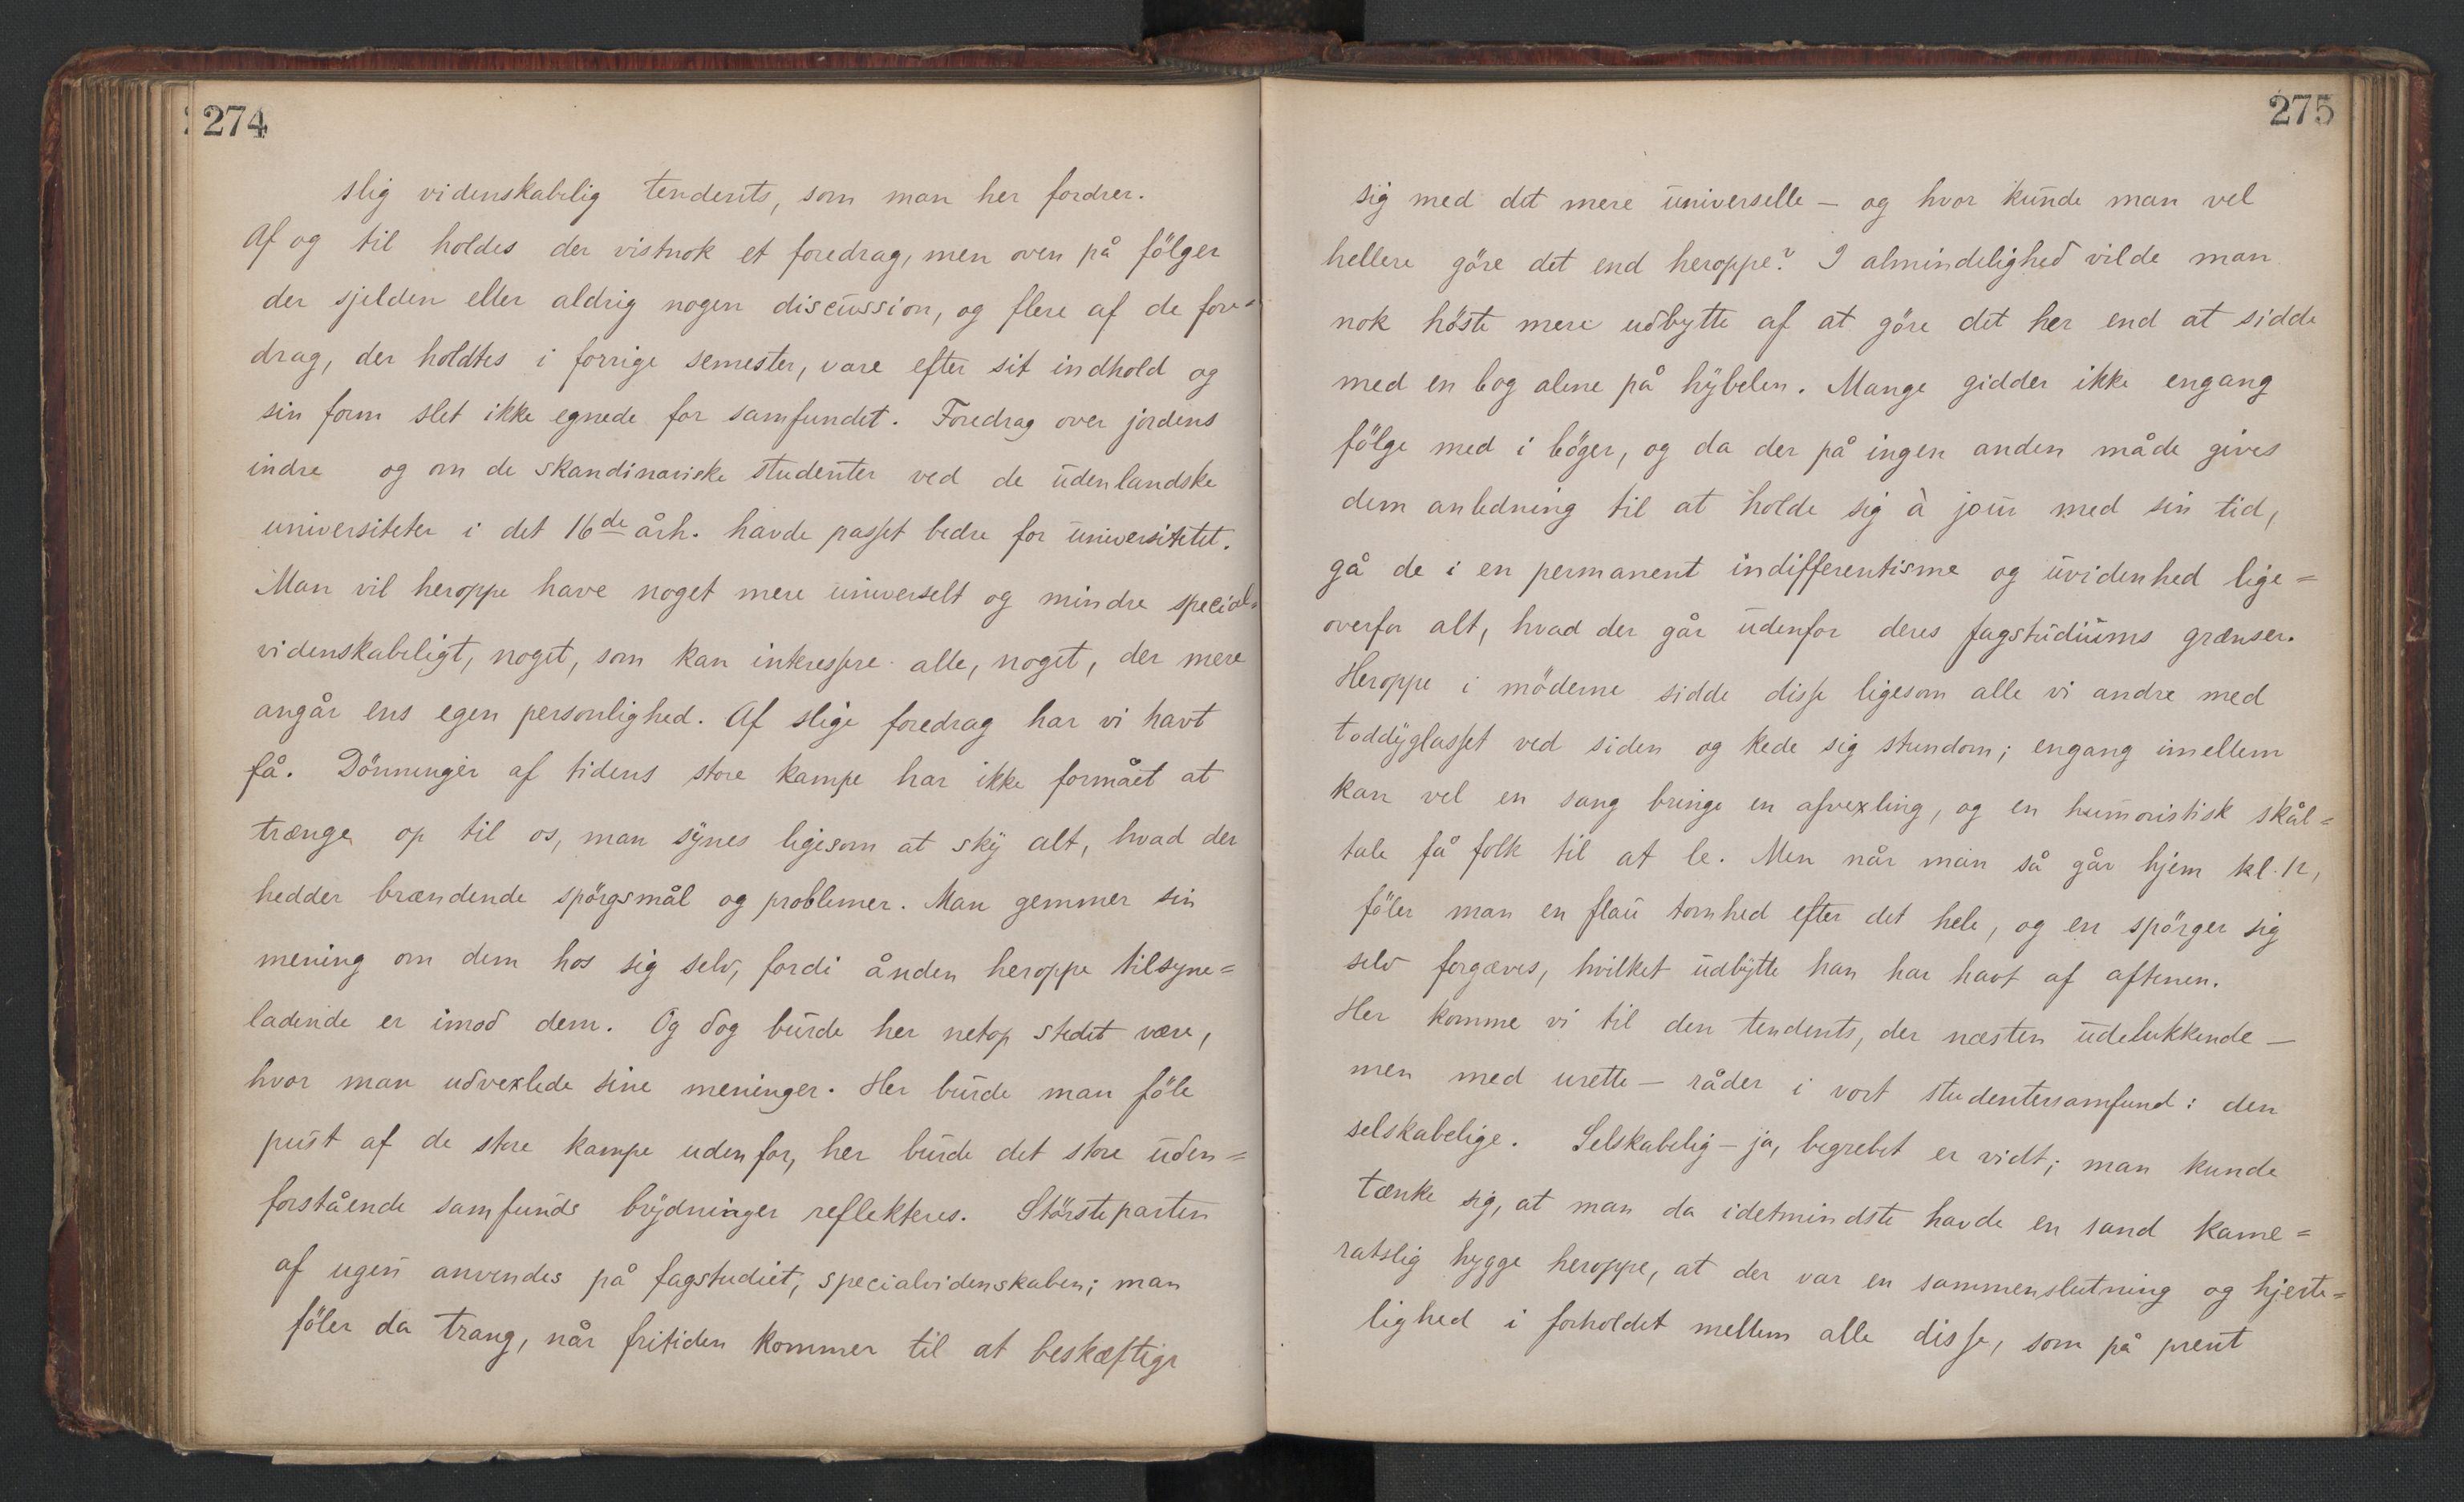 274
slig videnskabelig tendents, som man her fordrer.
Af og til holdes der vistnok et foredrag, men oven på følger
der sjelden eller aldrig nogen discussion, og flere af de fore=
drag, der holdtes i forrige semester, vare efter sit indhold og
sin form slet ikke egnede for samfundet. Foredrag over jordens
indre og om de skandinaviske studenter ved de udenlandske
universiteter i det 16de årh. havde passet bedre for universitetet.
Man vil heroppe have noget mere universelt og mindre special=
videnskabeligt, noget, som kan interessere alle, noget, der mere
angår ens egen personlighed. Af slige foredrag har vi havt
få. Dönninger af tidens store kampe har ikke formået at
trænge op til os, man synes ligesom at sky alt, hvad der
hedder brændende spörgsmål og problemer. Man gemmer sin
mening om dem hos sig selv, fordi ånden heroppe tilsyne=
ladende er imod dem. Og dog burde her netop stedet være,
hvor man udvexlede sine meninger. Her burde man föle
pust af de store kampe udenfor, her burde det store uden=
forstående samfunds brydninger reflekteres. Störsteparten
af ugen anvendes på fagstudiet, specialvidenskaben; man
föler da trang, når fritiden kommer til at beskæftige
275
sig med det mere universelle – og hvor kunde man vel
hellere göre det end heroppe? I almindelighed vilde man
nok höste mere udbytte af at göre det her end at sidde
med en bog alene på hybelen. Mange gidder ikke engang
fölge med i böger, og da der på ingen anden måde gives
dem anledning til at holde sig à jour med sin tid,
gå de i en permanent indifferentisme og uvidenhed lige=
overfor alt, hvad der går udenfor deres fagstudiums grænser.
Heroppe i möderne sidde disse ligesom alle vi andre med
toddyglasset ved siden og kede sig stundom; engang imellem
kan vel en sang bringe en afvexling, og en humoristisk skål=
tale få folk til at le. Men når man så går hjem kl. 12,
föler man en flau tomhed efter det hele, og en spörger sig
selv forgæves, hvilket udbytte han har havt af aftenen.
Her komme vi til den tendents, der næsten udelukkende –
men med urette – råder i vort studentersamfund: den
selskabelige. Selskabelig – ja, begrebet er vidt; man kunde
tænke sig, at man da idetmindste havde en sand kame=
ratslig hygge heroppe, at der var en sammenslutning og hjerte=
lighed i forholdet mellem alle disse, som på prent